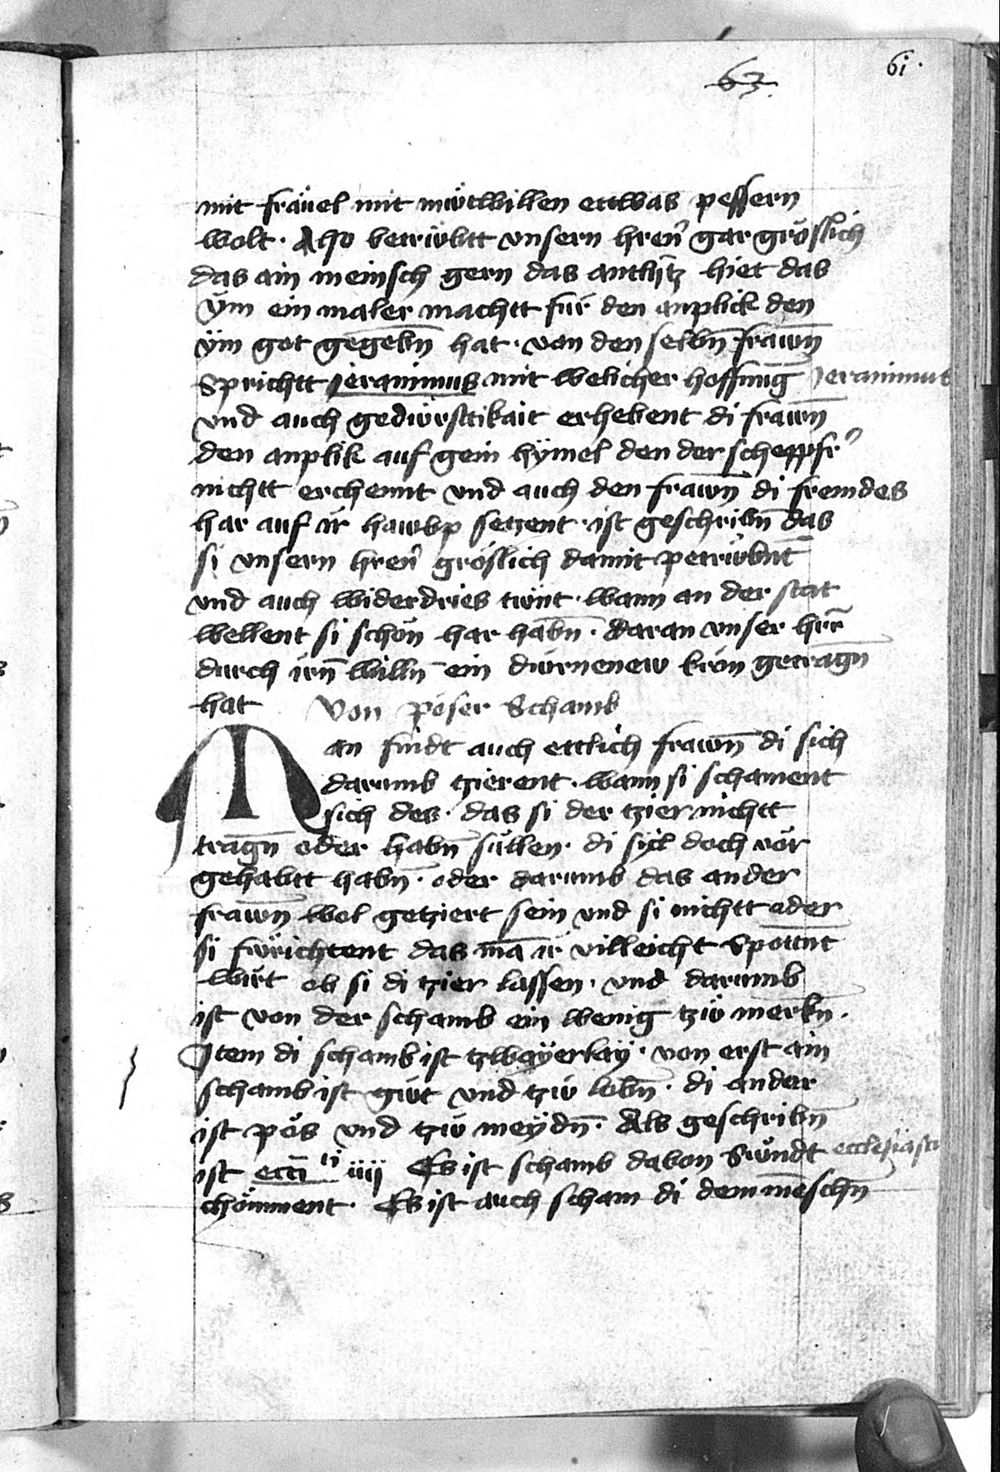 63 61
mit fräuel mit mütwillen ettwas pessern
wolt. Also betrübtt vnsern hren̄ gar gröslich
das ain meinsch gern das antlitz hiet das
ÿm ein maler machtt für den anplick den
ÿm got gegebn̄ hat. von den selbn̄ frawn̄
Sprichtt Jeranimus mit welicher hoffnuḡ Jeranimus
vnd auch gedürsttikait erhebent di frawn̄
den anplik auf gein hÿmel den der scheppfr̄
nichtt erchennt vnd auch den frawn̄ di fremdes
har auf ir hawbp setzent. ist geschribn̄ das
si vnsern hren̄ gröslich damit petrübnt̄
vnd auch widerdries tünt. wann an der stat
wellent si schön har habn̄. daran vnser hrr̄
durch irn̄ willn̄ ein dürnenew krön getragn̄
hat Von pöser Schamb
Man findt auch ettlich frawn̄ di sich
darumb tzierent. wann si schament
sich des. das si der tzier nichtt
tragn̄ oder habn̄ süllen. di sÿ doch vor
gehabtt habn̄. oder darumb das ander
frawn̄ wol getziert sein vnd si nichtt oder
si fürichtent das mā ir villeicht Spottnt̄
würt ob si di tzier lassen. vnd darumb
ist von der schamb ein wenig tzü merkn̄.
Item di schamb ist tzwaÿerlaÿ. von erst ain
schamb ist güt vnd tzü lobn̄. di ander
ist pös vnd tzü meÿdn̄. Als geschribn̄
ist ecci̅ ci iiij Es ist schamb dabon Sündt ecclesiastici
chömment. Es ist auch scham di dem menschn̄